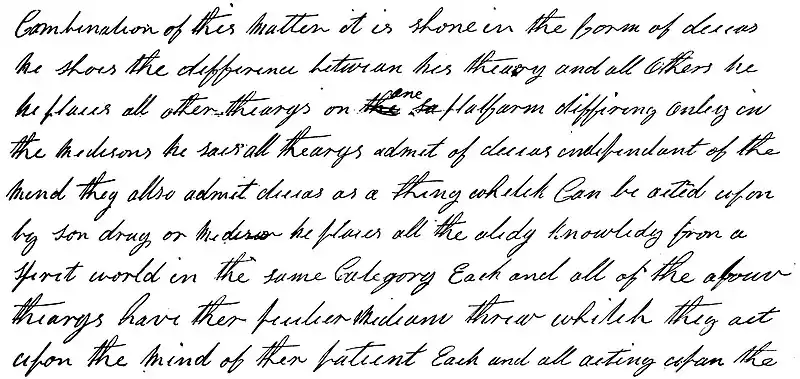 Combination of this matter it is shone in the form of diseas
he shoes the difference betwean his theary and all others he
he places all other thearys on the ane sa platfarm differing onley in
the medisons he saes all thearys admit of diseas indipendant of the
mind they allso admit diseas as a thing whitch can be acted upon
by son drug or medison he places all the aledy knowledg from a
spirit world in the same Category Each and all of the above
thearys have ther peculier medieum threw whitch they act
upon the mind of ther patient Each and all acting upan the